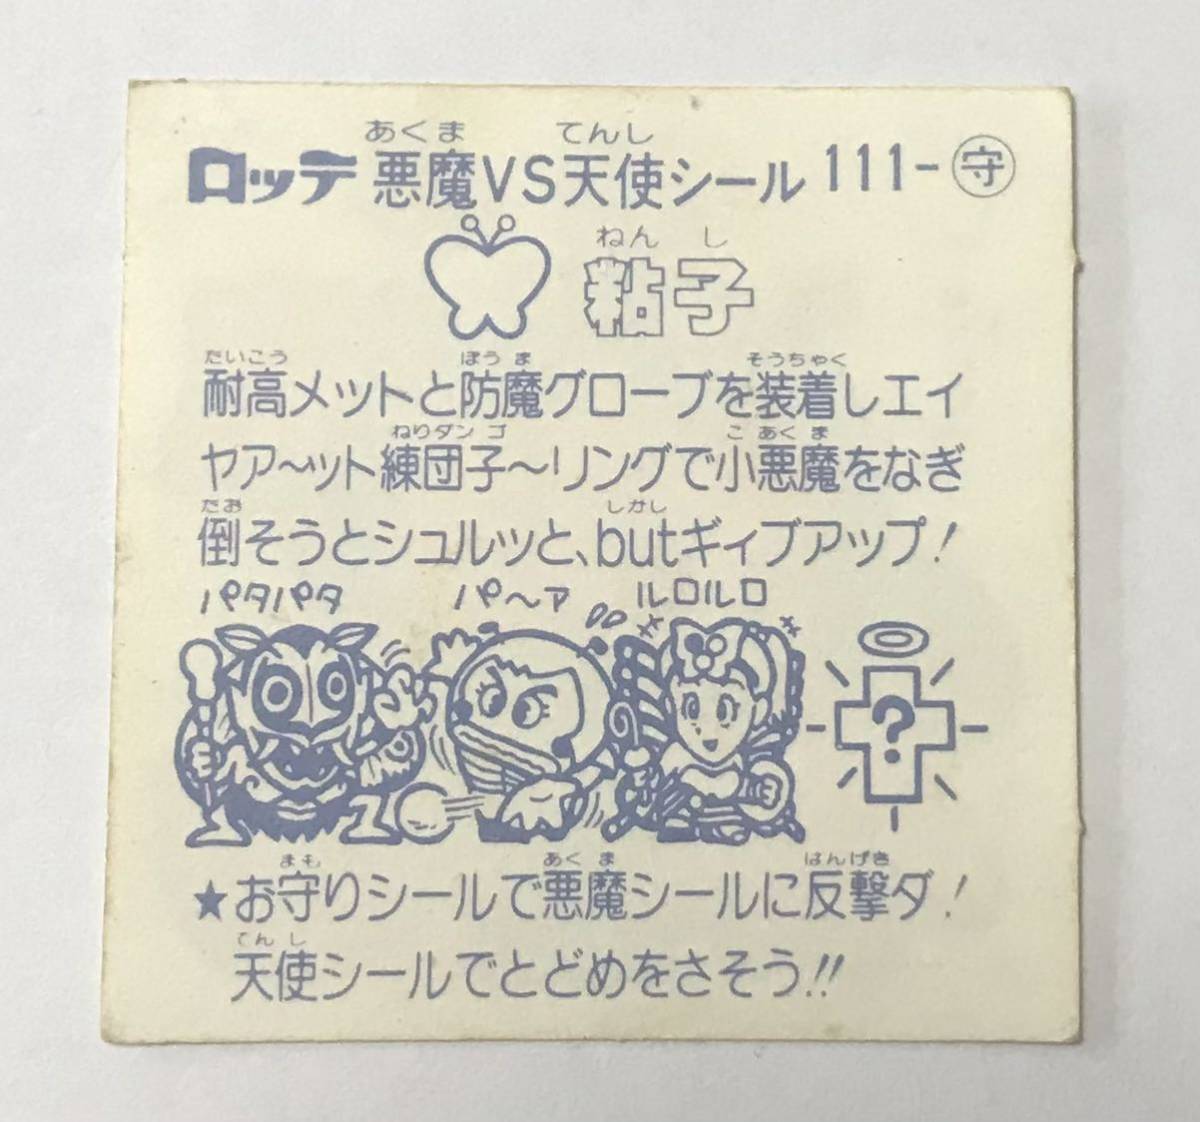 あくま てんし
ロッテ 悪魔VS天使シール 111-守
ねん し
粘子
たいこう ぼう ま そうちゃく
耐高メットと防魔グローブを装着しエイ
ねりダン ゴ こ あくま
ヤア〜ット練団子〜リングで小悪魔をなぎ
たお しかし
倒そうとシュルッと、butギィブアップ!
パタパタ パ〜ア ルロルロ
?
まも あく ま はんげき
★お守りシールで悪魔シールに反撃ダ!
てん し
天使シールでとどめをさそう!!